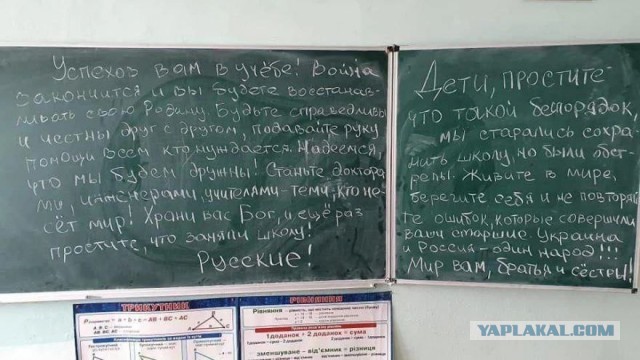 Успехов вам в учёбе! Война
закончится и вы будете восстанав-
ливать свою Родину. Будьте справедливы
и честны друг с другом, подавайте руку
помощи всем кто нуждается. Надеемся,
что мы будем дружны! Станьте доктора-
ми, инженерами, учителями - теми, кто не-
сёт мир! Храни вас Бог, и ещё раз
простите, что заняли школу!
Русские!
Дети, простите
что такой беспорядок,
мы старались сохра-
нить школу, но были обст-
релы. Живите в мире,
берегите себя и не повторяй-
те ошибок, которые совершили
ваши старшие. Украина
и Россия - один народ!!!
Мир вам, братья и сёстры!
ТРИКУТНИК
P = a + b + c = AB + BC + AC
РІВНЯННЯ
Рівняння
1доданок + 2 доданок = сума
зменшуване - від'ємник = різниця
YAPLAKAL.COM